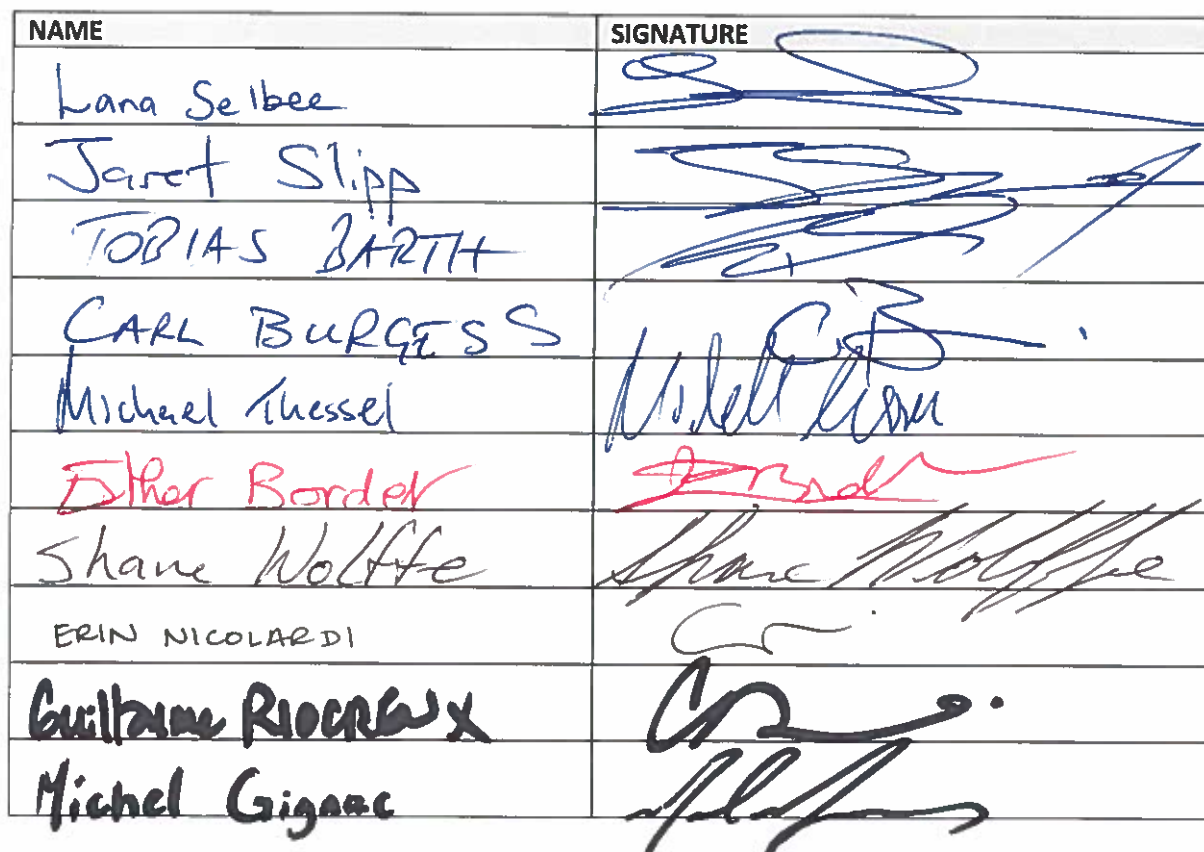 NAME SIGNATURE
Lana Selbee
Jaret Slipp
TOBIAS BARTH
CARL BURGESS
Michael Thessel
Esther Border
Shane Wolffe Shane Wolffe
ERIN NICOLARDI
Guillaume RIOCREUX
Michel Gignac